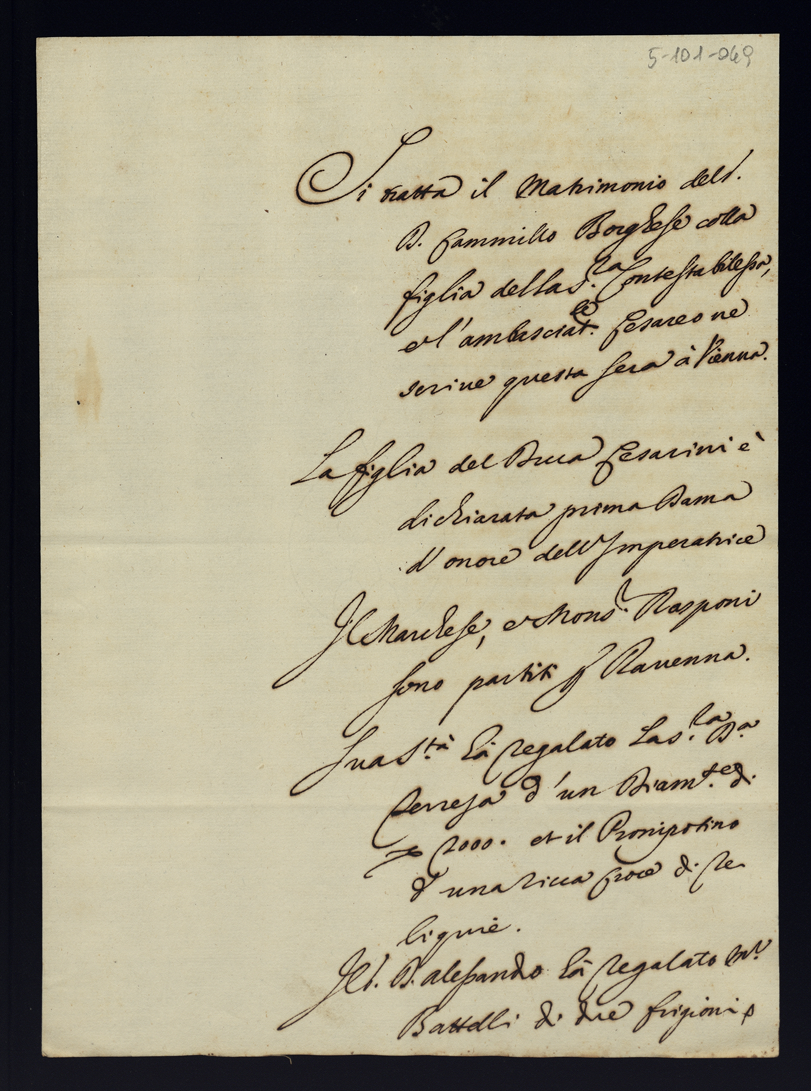 5-101-069
Si tratta il Matrimonio del S.
D. Cammillo Borghese colla
figlia della S.ra Contestabilessa,
et l'ambasciat.re Cesareo ne
scrive questa sera à Vienna.
La figlia del Duca Cesarini è
dichiarata prima Dama
d'onore dell'Imperatrice
Il Marchese, et Mons.r Rasponi
sono partiti p Ravenna.
Sua S.tà hà regalato la S.ra D.a
Teresa d'un Diam.te di
2000. et il Pronipotino
d'una ricca Croce di re
liquie.
Il S. D. Alessandro hà regalato M.r
Battelli di due frigioni